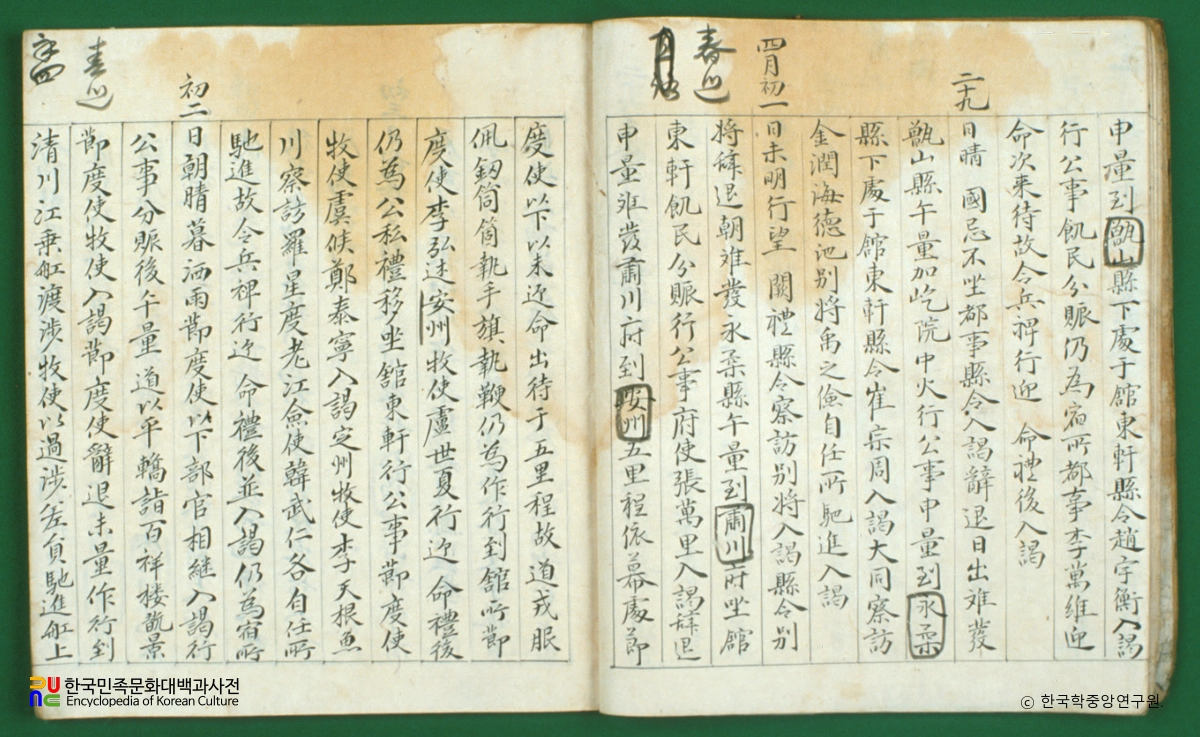 二十九
四月初一
春巡
申量到甑山縣下處于館東軒縣令趙宇衡入謁
行公事飢民分賑仍爲宿所都事李萬維迎
命次來待故令兵裨行迎 命禮後入謁
日晴 國忌不坐都事縣令入謁辭退日出離發
甑山縣午量加屹院中火行公事申量到永柔
縣下處于館東軒縣令崔宗周入謁大同察訪
金潤海德池別將禹之儉自任所馳進入謁
日未明行望 闕禮縣令察訪別將入謁縣令別
將辭退朝離發永柔縣午量到肅川府坐館
東軒飢民分賑行公事府使張萬里入謁辭退
申量離發肅川府到安州五里程依幕處節
初二
春巡
度使以下以未迎命出待于五里程故道戎服
佩釰筒箇執手旗執鞭仍爲作行到館所節
度使李弘述安州牧使盧世夏行迎 命禮後
仍爲公私禮移坐舘東軒行公事節度使
牧使虞候鄭泰寧入謁定州牧使李天根魚
川察訪羅星度老江僉使韓武仁各自任所
馳進故令兵裨行迎 命禮後並入謁仍爲宿所
日朝晴暮洒雨節度使以下部官相継入謁行
公事分賑後午量道以平轎詣百祥楼翫景
節度使牧使入謁節度使辭退未量作行到
清川江乗舡渡涉牧使以過涉差員馳進舡上
한국민족문화대백과사전
Encyclopedia of Korean Culture
ⓒ 한국학중앙연구원.